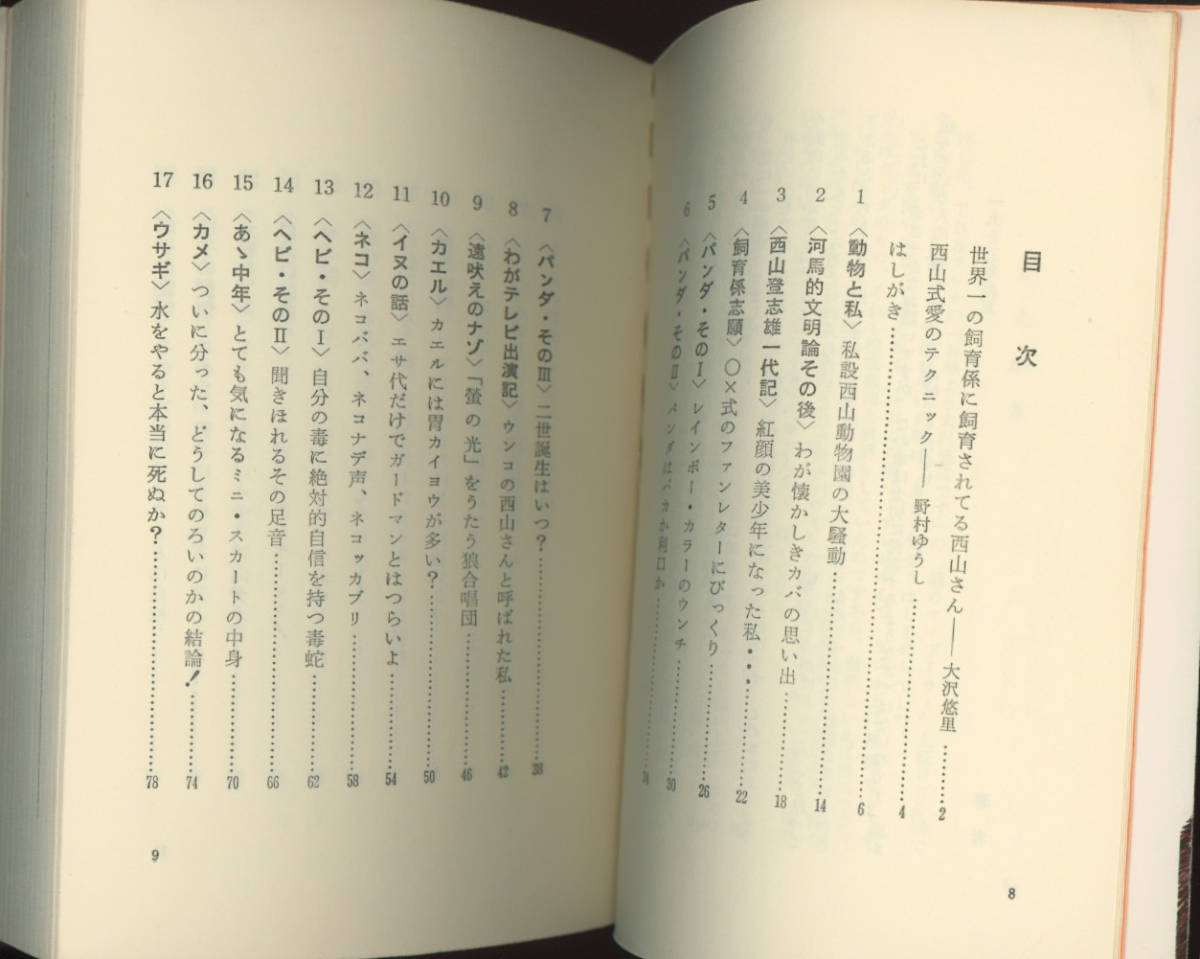 目次
世界一の飼育係に飼育されてる西山さん――大沢悠里………2
西山式愛のテクニック――野村ゆうし………4
はしがき………6
1 〈動物と私〉私設西山動物園の大騒動………14
2 〈河馬的文明論その後〉わが懐かしきカバの思い出………18
3 〈西山登志雄一代記〉紅顔の美少年になった私………22
4 〈飼育係志願〉〇×式のファンレターにびっくり………26
5 〈パンダ・そのⅠ〉レインボー・カラーのウンチ………30
6 〈パンダ・そのⅡ〉パンダはバカか利口か………34
8
7 〈パンダ・そのⅢ〉二世誕生はいつ？………38
8 〈わがテレビ出演記〉ウンコの西山さんと呼ばれた私………42
9 〈遠吠えのナゾ〉「螢の光」をうたう狼合唱団………46
10 〈カエル〉カエルには胃カイヨウが多い？………50
11 〈イヌの話〉エサ代だけでガードマンとはつらいよ………54
12 〈ネコ〉ネコババ、ネコナデ声、ネコッカブリ………58
13 〈ヘビ・そのⅠ〉自分の毒に絶対的自信を持つ毒蛇………62
14 〈ヘビ・そのⅡ〉聞きほれるその足音………66
15 〈あゝ中年〉とても気になるミニ・スカートの中身………70
16 〈カメ〉ついに分った、どうしてのろいのかの結論！………74
17 〈ウサギ〉水をやると本当に死ぬか？………78
9